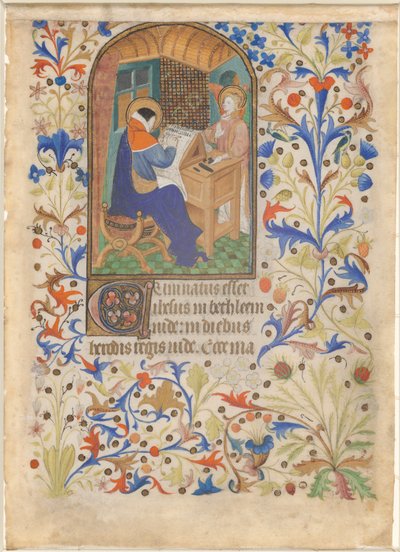 CUm natus esset
ihesus in bethleem
iude: in diebus
herodis regis iude. Ecce ma